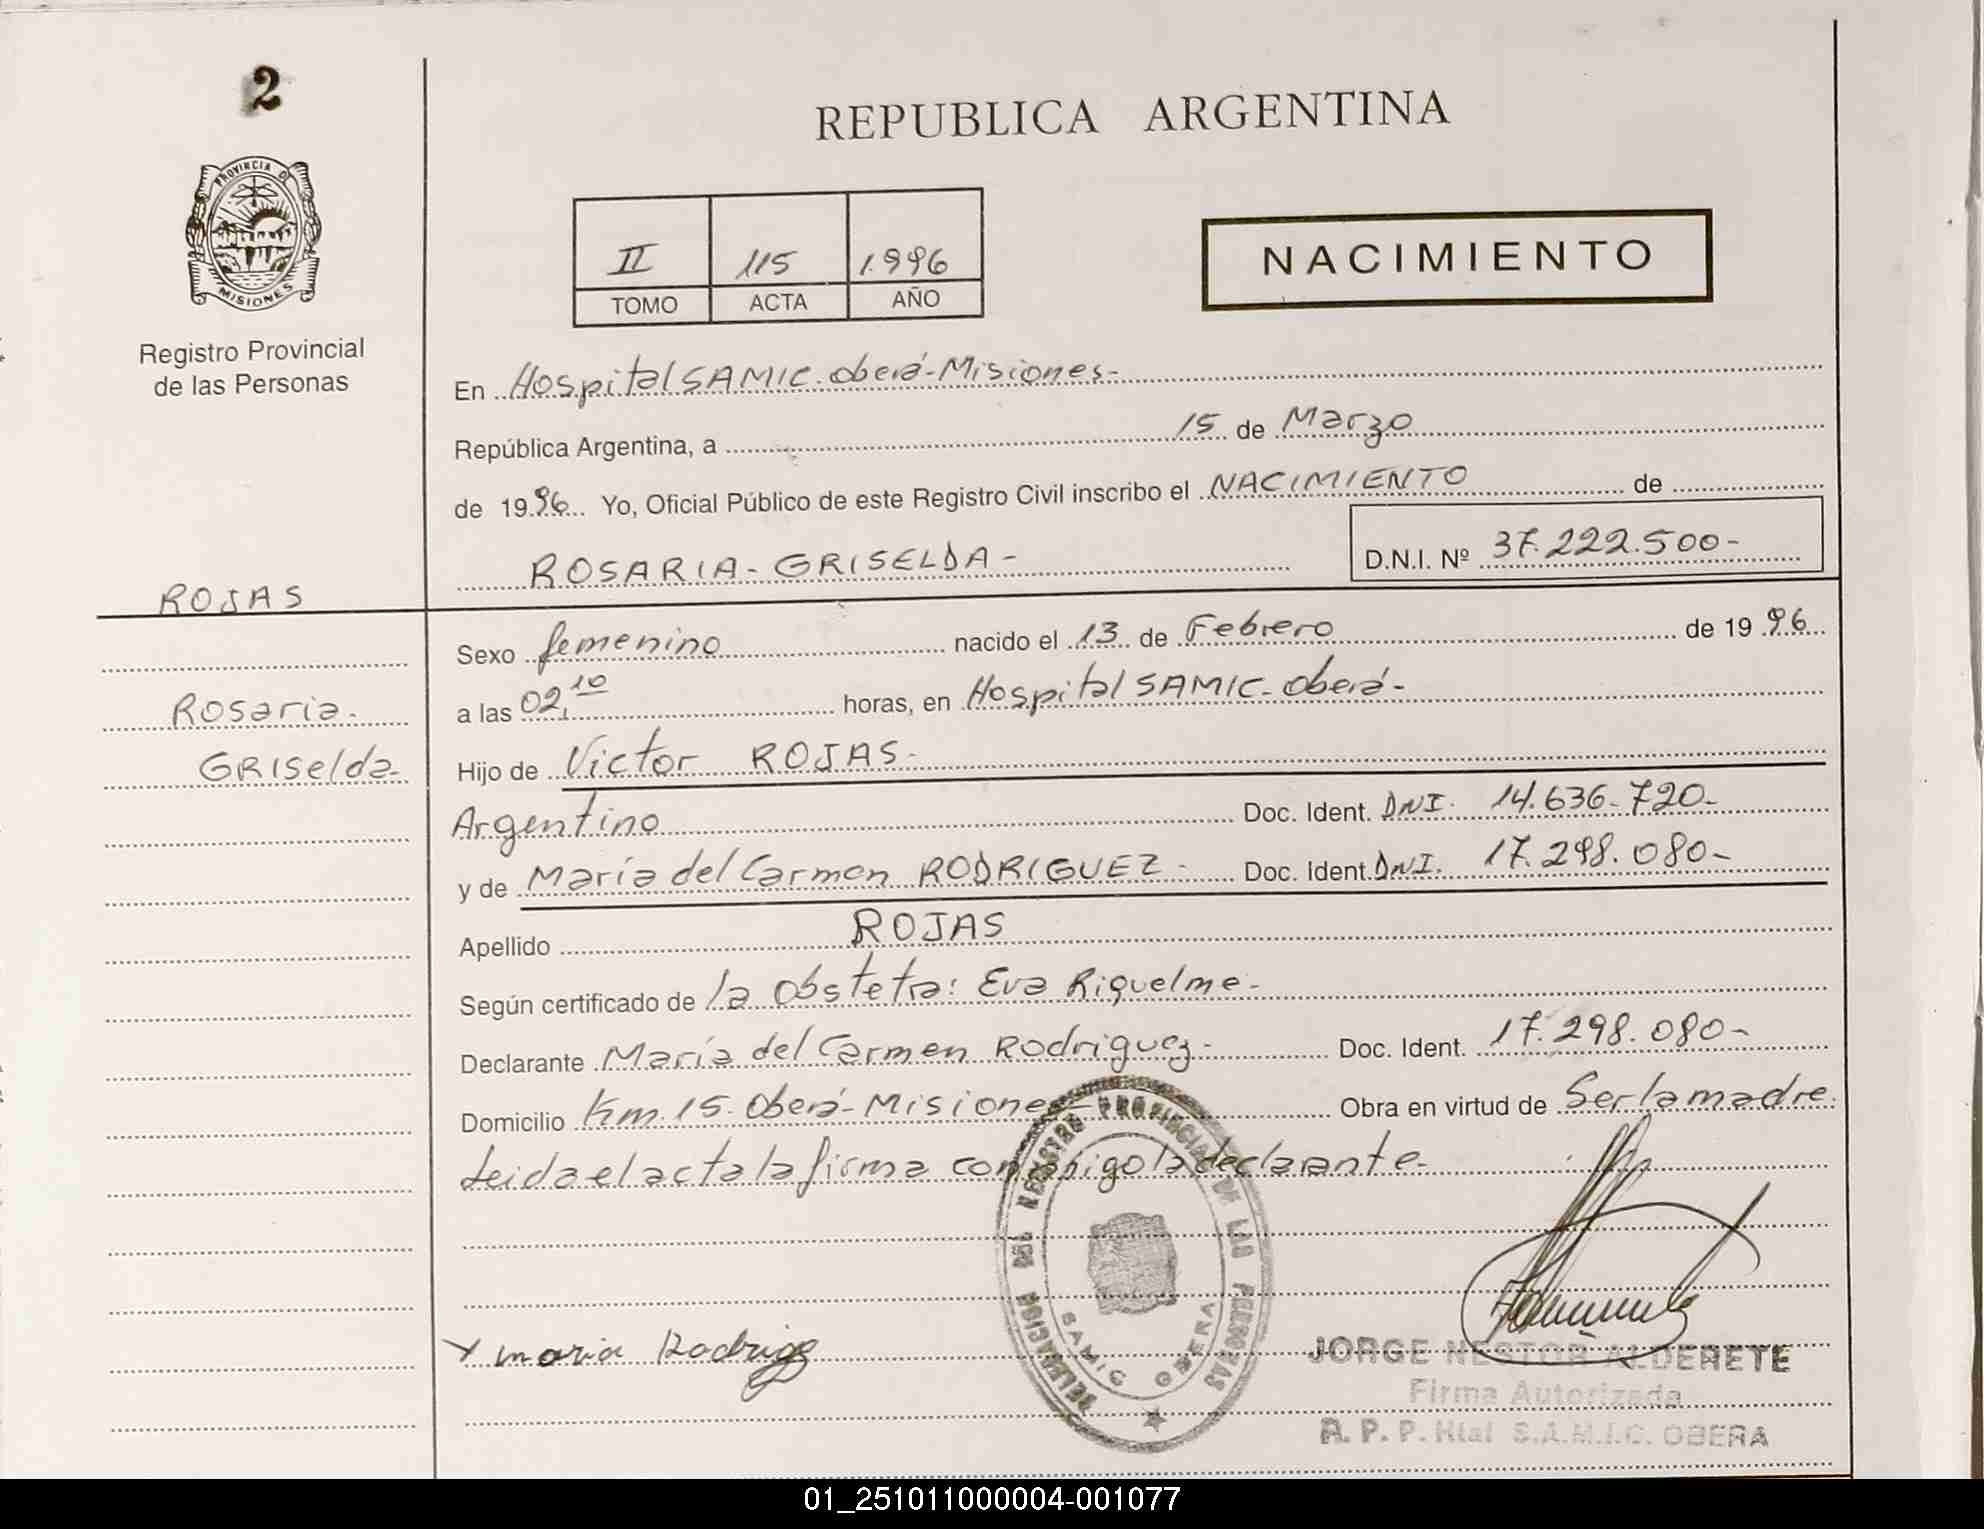 2
REPUBLICA ARGENTINA
PROVINCIA D
MISIONES
Registro Provincial
de las Personas
II 115 1.996
TOMO ACTA AÑO
NACIMIENTO
En Hospital SAMIC. Oberá-Misiones-
República Argentina, a 15 de Marzo
de 1996 Yo, Oficial Público de este Registro Civil inscribo el NACIMIENTO de
ROSARIA-GRISELDA- D.N.I. Nº 37.222.500-
ROJAS
Rosaria.
GRISelda-
Sexo femenino nacido el 13 de Febrero de 1996
a las 02,10 horas, en Hospital SAMIC-Oberá-
Hijo de Victor ROJAS-
Argentino Doc. Ident. DNI. 14.636-720-
y de María del Carmen RODRIGUEZ- Doc. Ident. DNI. 17.298.080-
Apellido ROJAS
Según certificado de la Obstetra: Eva Riquelme-
Declarante María del Carmen Rodriguez- Doc. Ident. 17.298.080-
Domicilio Km.15. Oberá-Misiones- Obra en virtud de Ser la madre.
Leida el acta la firma conmigo la declarante-
DELEGACION DEL REGISTRO PROVINCIAL DE LAS PERSONAS
SAMIC OBERA
x maria Rodrigz
JORGE NESTOR ALDERETE
Firma Autorizada
R. P. P. Htal S.A.M.I.C. OBERA
01_251011000004-001077